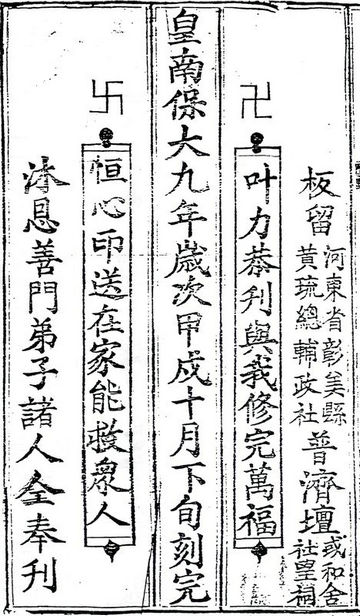 板留
河東省彰美縣
黃琉總輔政社
普濟壇
或和舍
社皇祠
卍
叶力恭刊與我修完萬福
皇南保大九年歲次甲戌十月下旬刻完
卐
恒心印送在家能救衆人
沐恩善門弟子諸人仝奉刊